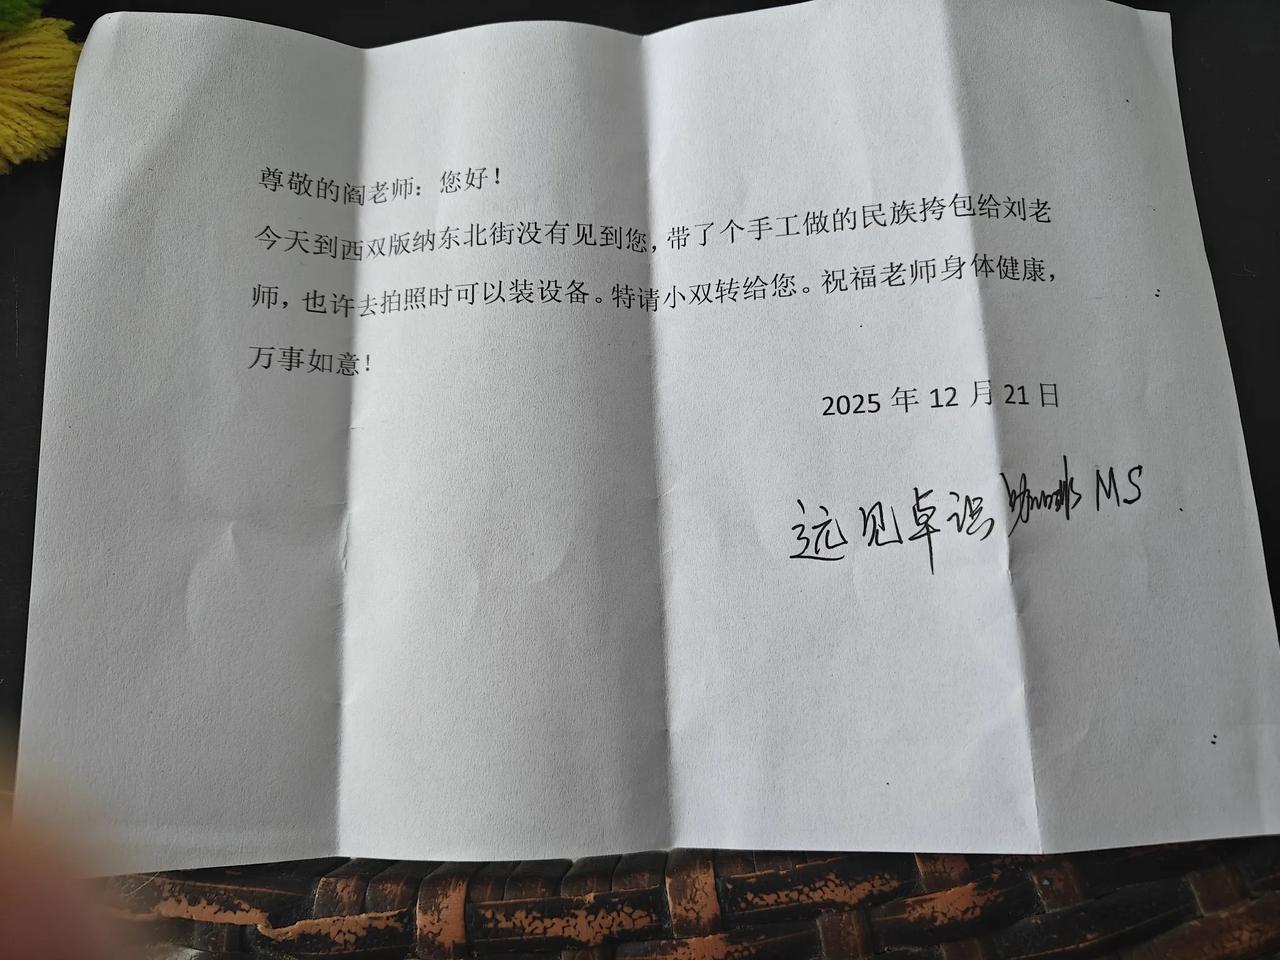 尊敬的阎老师：您好！
今天到西双版纳东北街没有见到您，带了个手工做的民族挎包给刘老
师，也许去拍照时可以装设备。特请小双转给您。祝福老师身体健康，
万事如意！
2025 年 12 月 21 日
远见卓识 MS